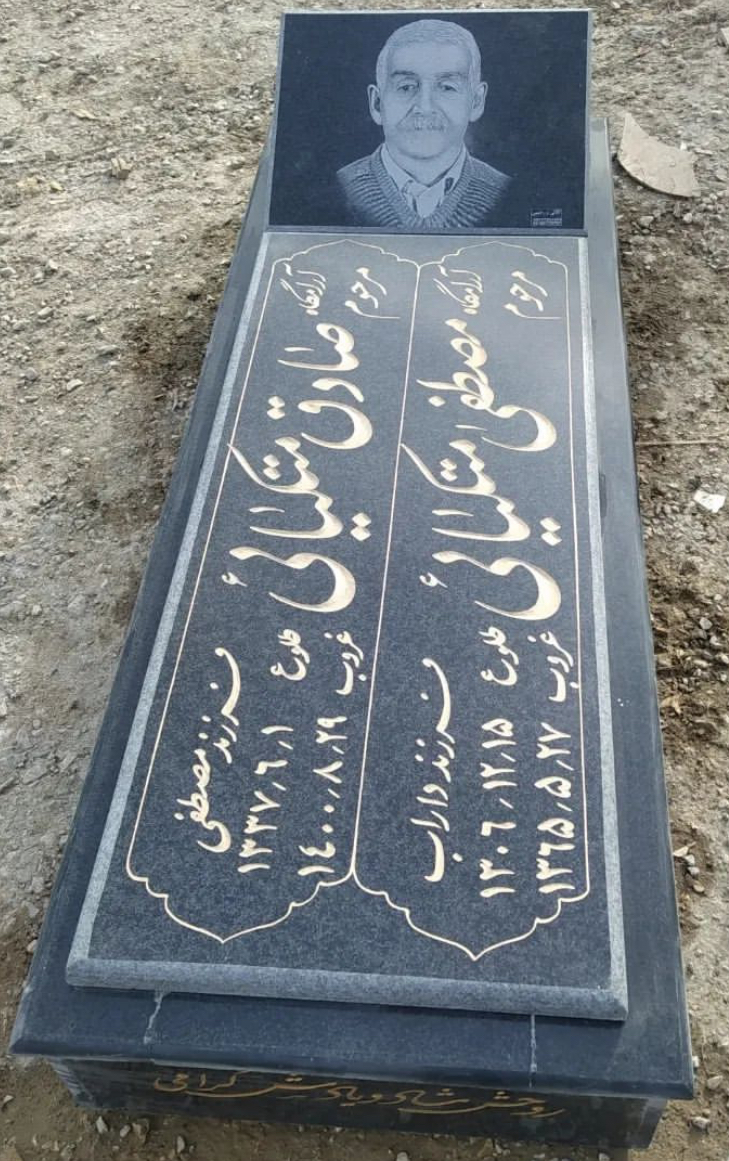 آرامگاه
مرحوم
صادق متکیائی
فرزند مصطفی
طلوع ۱۳۳۷٫۶٫۱
غروب ۱۴۰۰٫۸٫۲۹
آرامگاه
مرحوم
مصطفی متکیائی
فرزند داراب
طلوع ۱۳۰۶٫۱۲٫۱۵
غروب ۱۳۶۵٫۵٫۲۷
روحش شاد و یادش گرامی